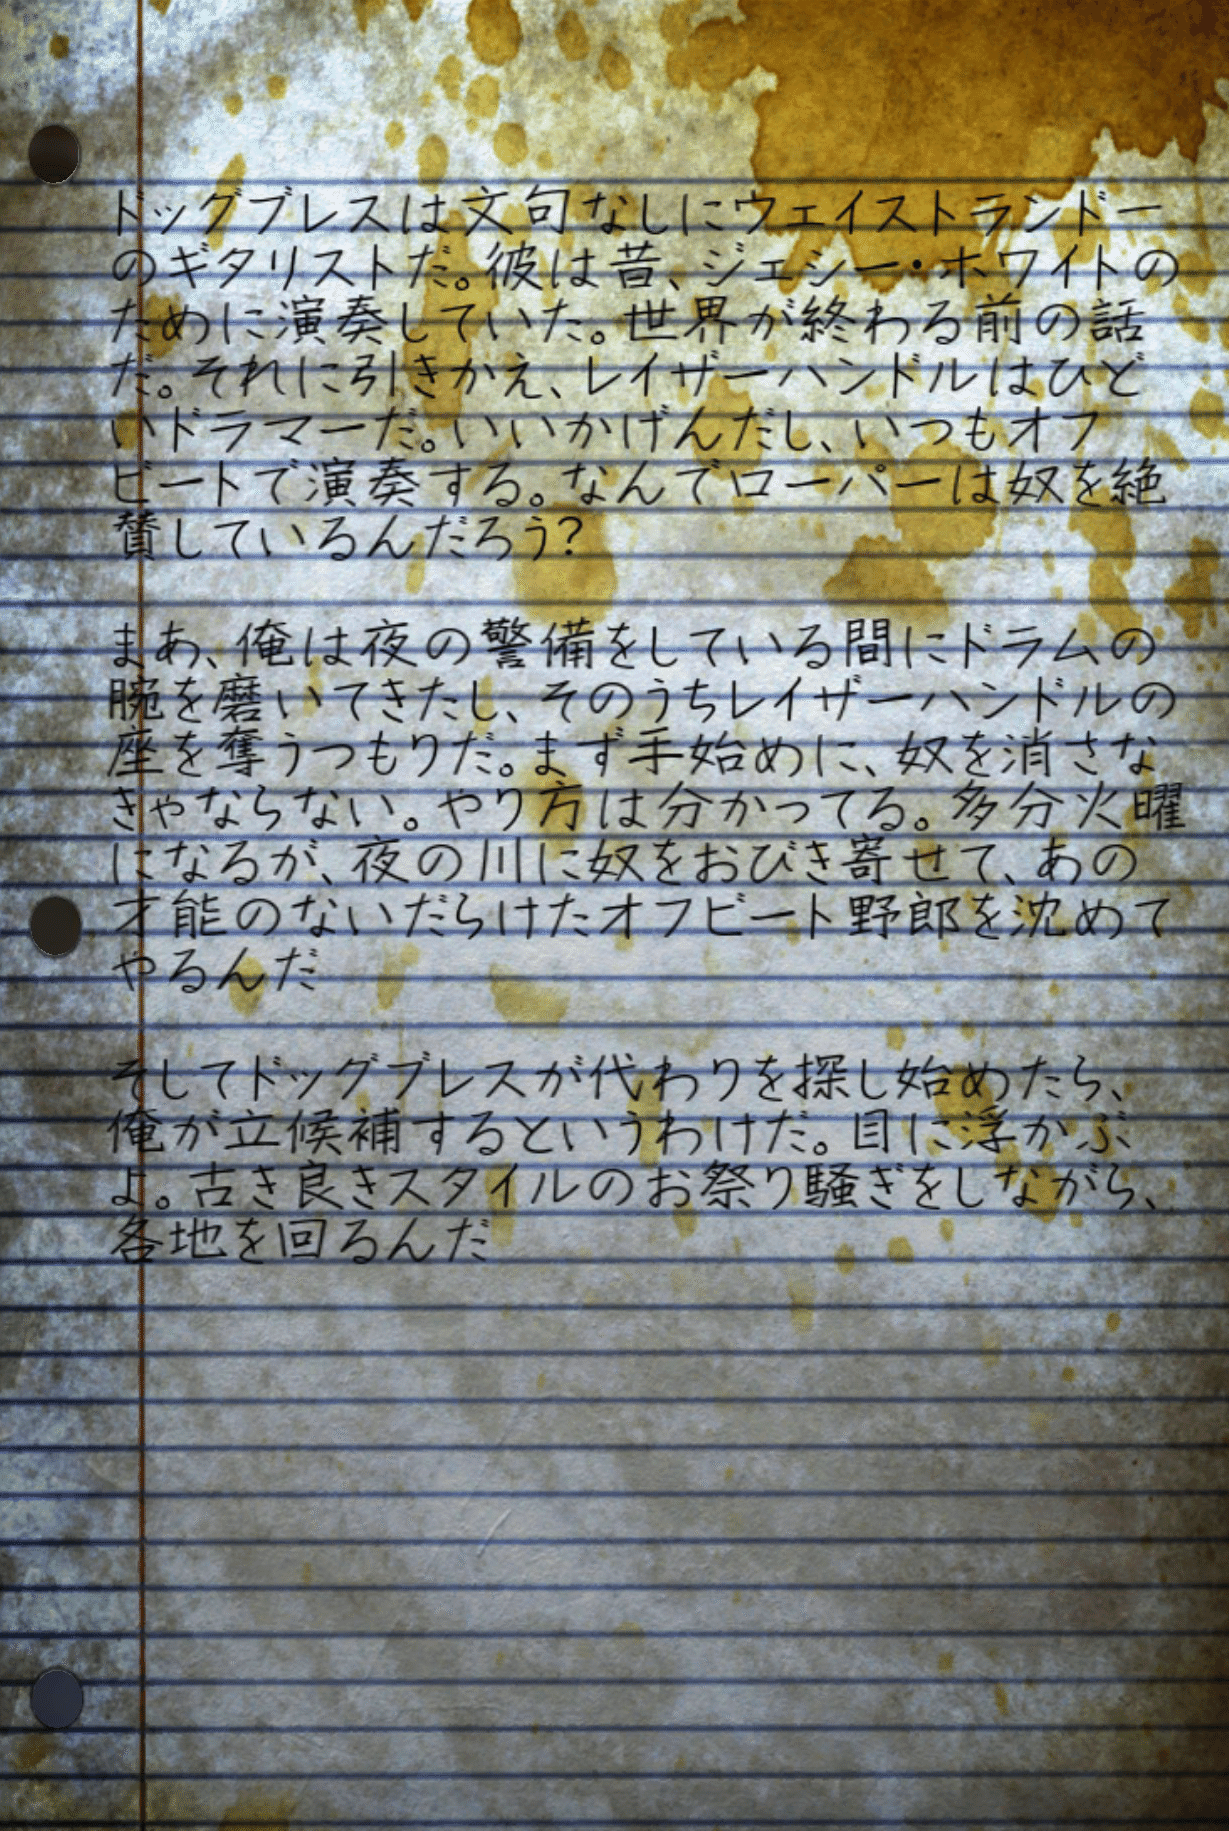 ドッグブレスは文句なしにウェイストランドー
のギタリストだ。彼は昔、ジェシー・ホワイトの
ために演奏していた。世界が終わる前の話
だ。それに引きかえ、レイザーハンドルはひど
いドラマーだ。いいかげんだし、いつもオフ
ビートで演奏する。なんでローパーは奴を絶
賛しているんだろう?
まあ、俺は夜の警備をしている間にドラムの
腕を磨いてきたし、そのうちレイザーハンドルの
座を奪うつもりだ。まず手始めに、奴を消さな
きゃならない。やり方は分かってる。多分火曜
になるが、夜の川に奴をおびき寄せて、あの
才能のないだらけたオフビート野郎を沈めて
やるんだ
そしてドッグブレスが代わりを探し始めたら、
俺が立候補するというわけだ。目に浮かぶ
よ。古き良きスタイルのお祭り騒ぎをしながら、
各地を回るんだ